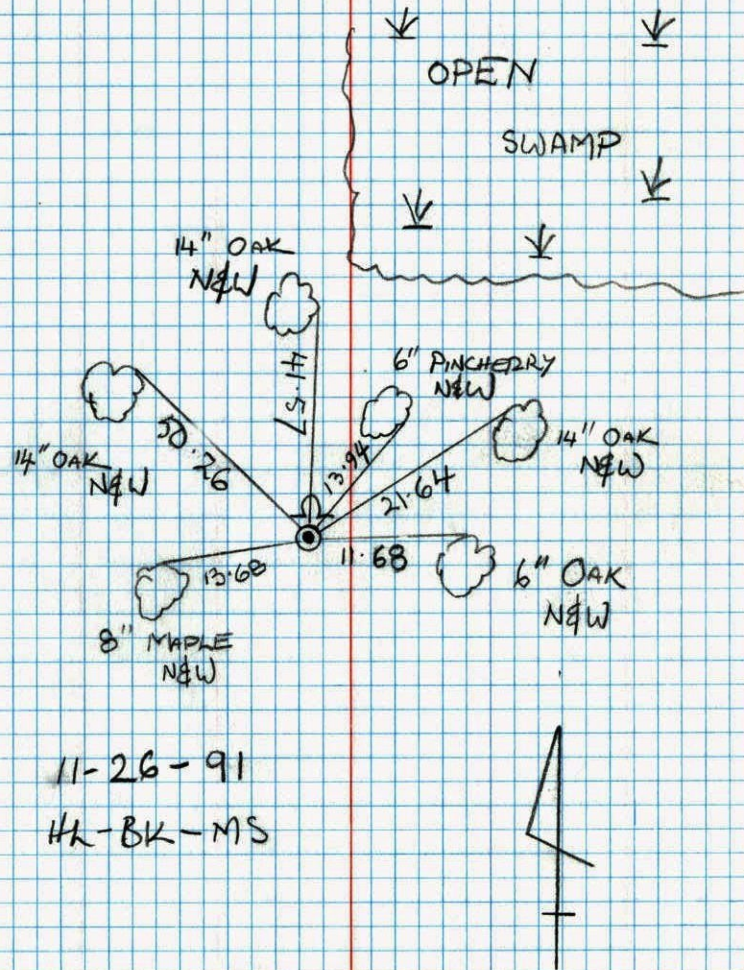 OPEN
SWAMP
14" OAK
N&W
41.57
6" PINCHERRY
N&W
14" OAK
N&W
50.26
14" OAK
N&W
13.94
21.64
11.68
13.68
6" OAK
N&W
8" MAPLE
N&W
11-26-91
HL-BK-MS